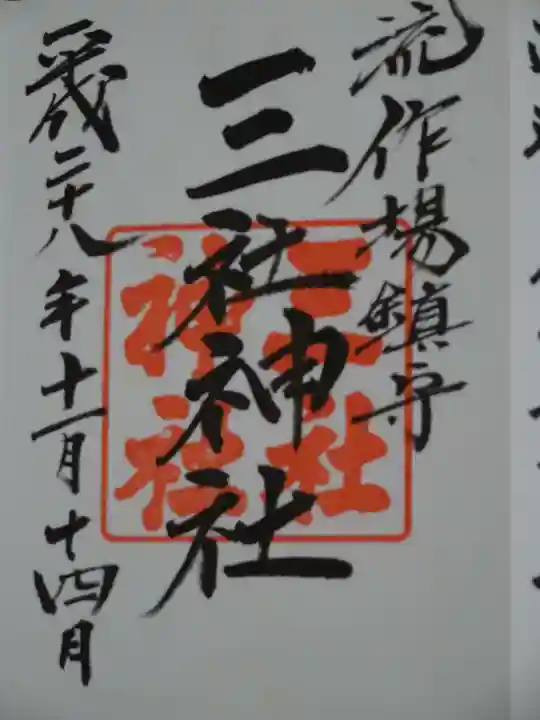 流作場鎮守
三社神社
平成二十八年十一月十四日
三社
神社